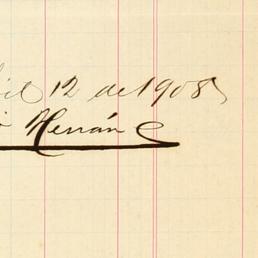 12 de 1908
Hernán